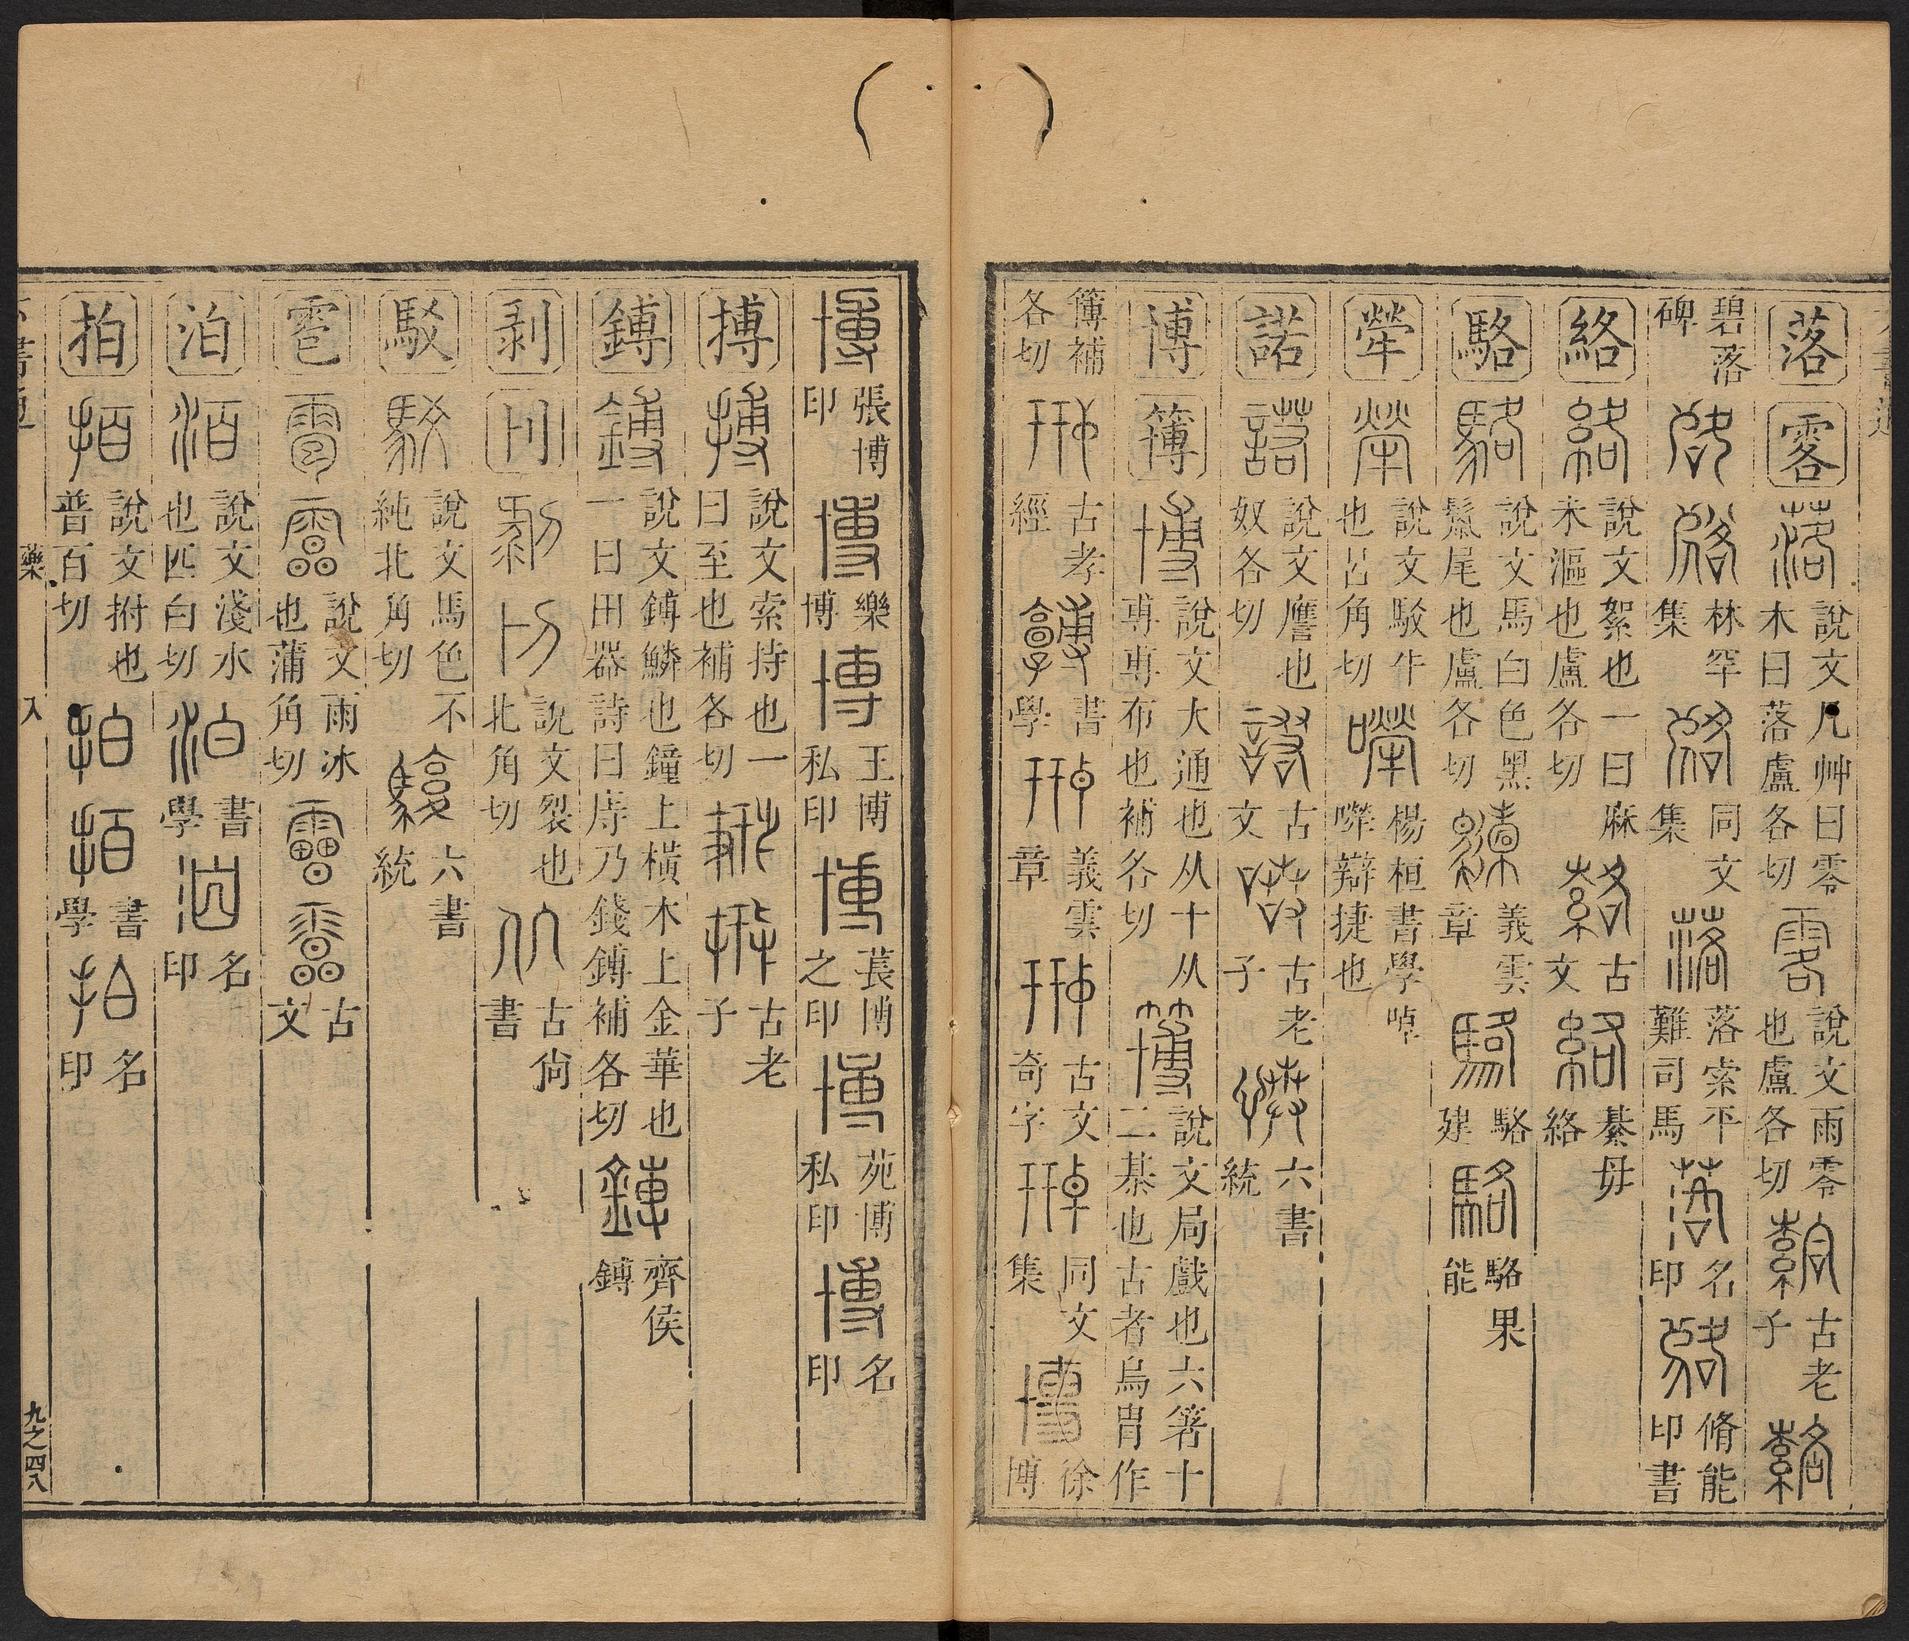 落 零 說文凡艸曰零木曰落盧各切 說文雨零也盧各切 古老子
碧落碑 林罕集 同文集 落索平難司馬 名印 脩能印書
絡 說文絮也一曰麻未漚也盧各切 古文 綦毋絡
駱 說文馬白色黑鬣尾也盧各切 義雲章 駱建 駱果能
犖 說文駁牛也呂角切 楊桓書學啅嚛辯捷也
諾 說文譍也奴各切 古文 古老子 六書統
博 簙 說文大通也从十从尃尃布也補各切 說文局戲也六箸十二棊也古者烏冑作
簙補各切 古孝經 書學 義雲章 古文奇字 同文集 徐博
張博印 樂博 王博私印 萇博之印 苑博私印 名印
搏 說文索持也一曰至也補各切 古老子
鎛 說文鎛鱗也鐘上橫木上金華也一曰田器詩曰庤乃錢鎛補各切 齊侯鎛
剥 刂 說文裂也北角切 古尚書
駁 說文馬色不純北角切 六書統
雹 說文雨冰也蒲角切 古文
泊 說文淺水也匹白切 書學 名印
拍 說文拊也普百切 書學 名印
六書通 藥 入 九之四八